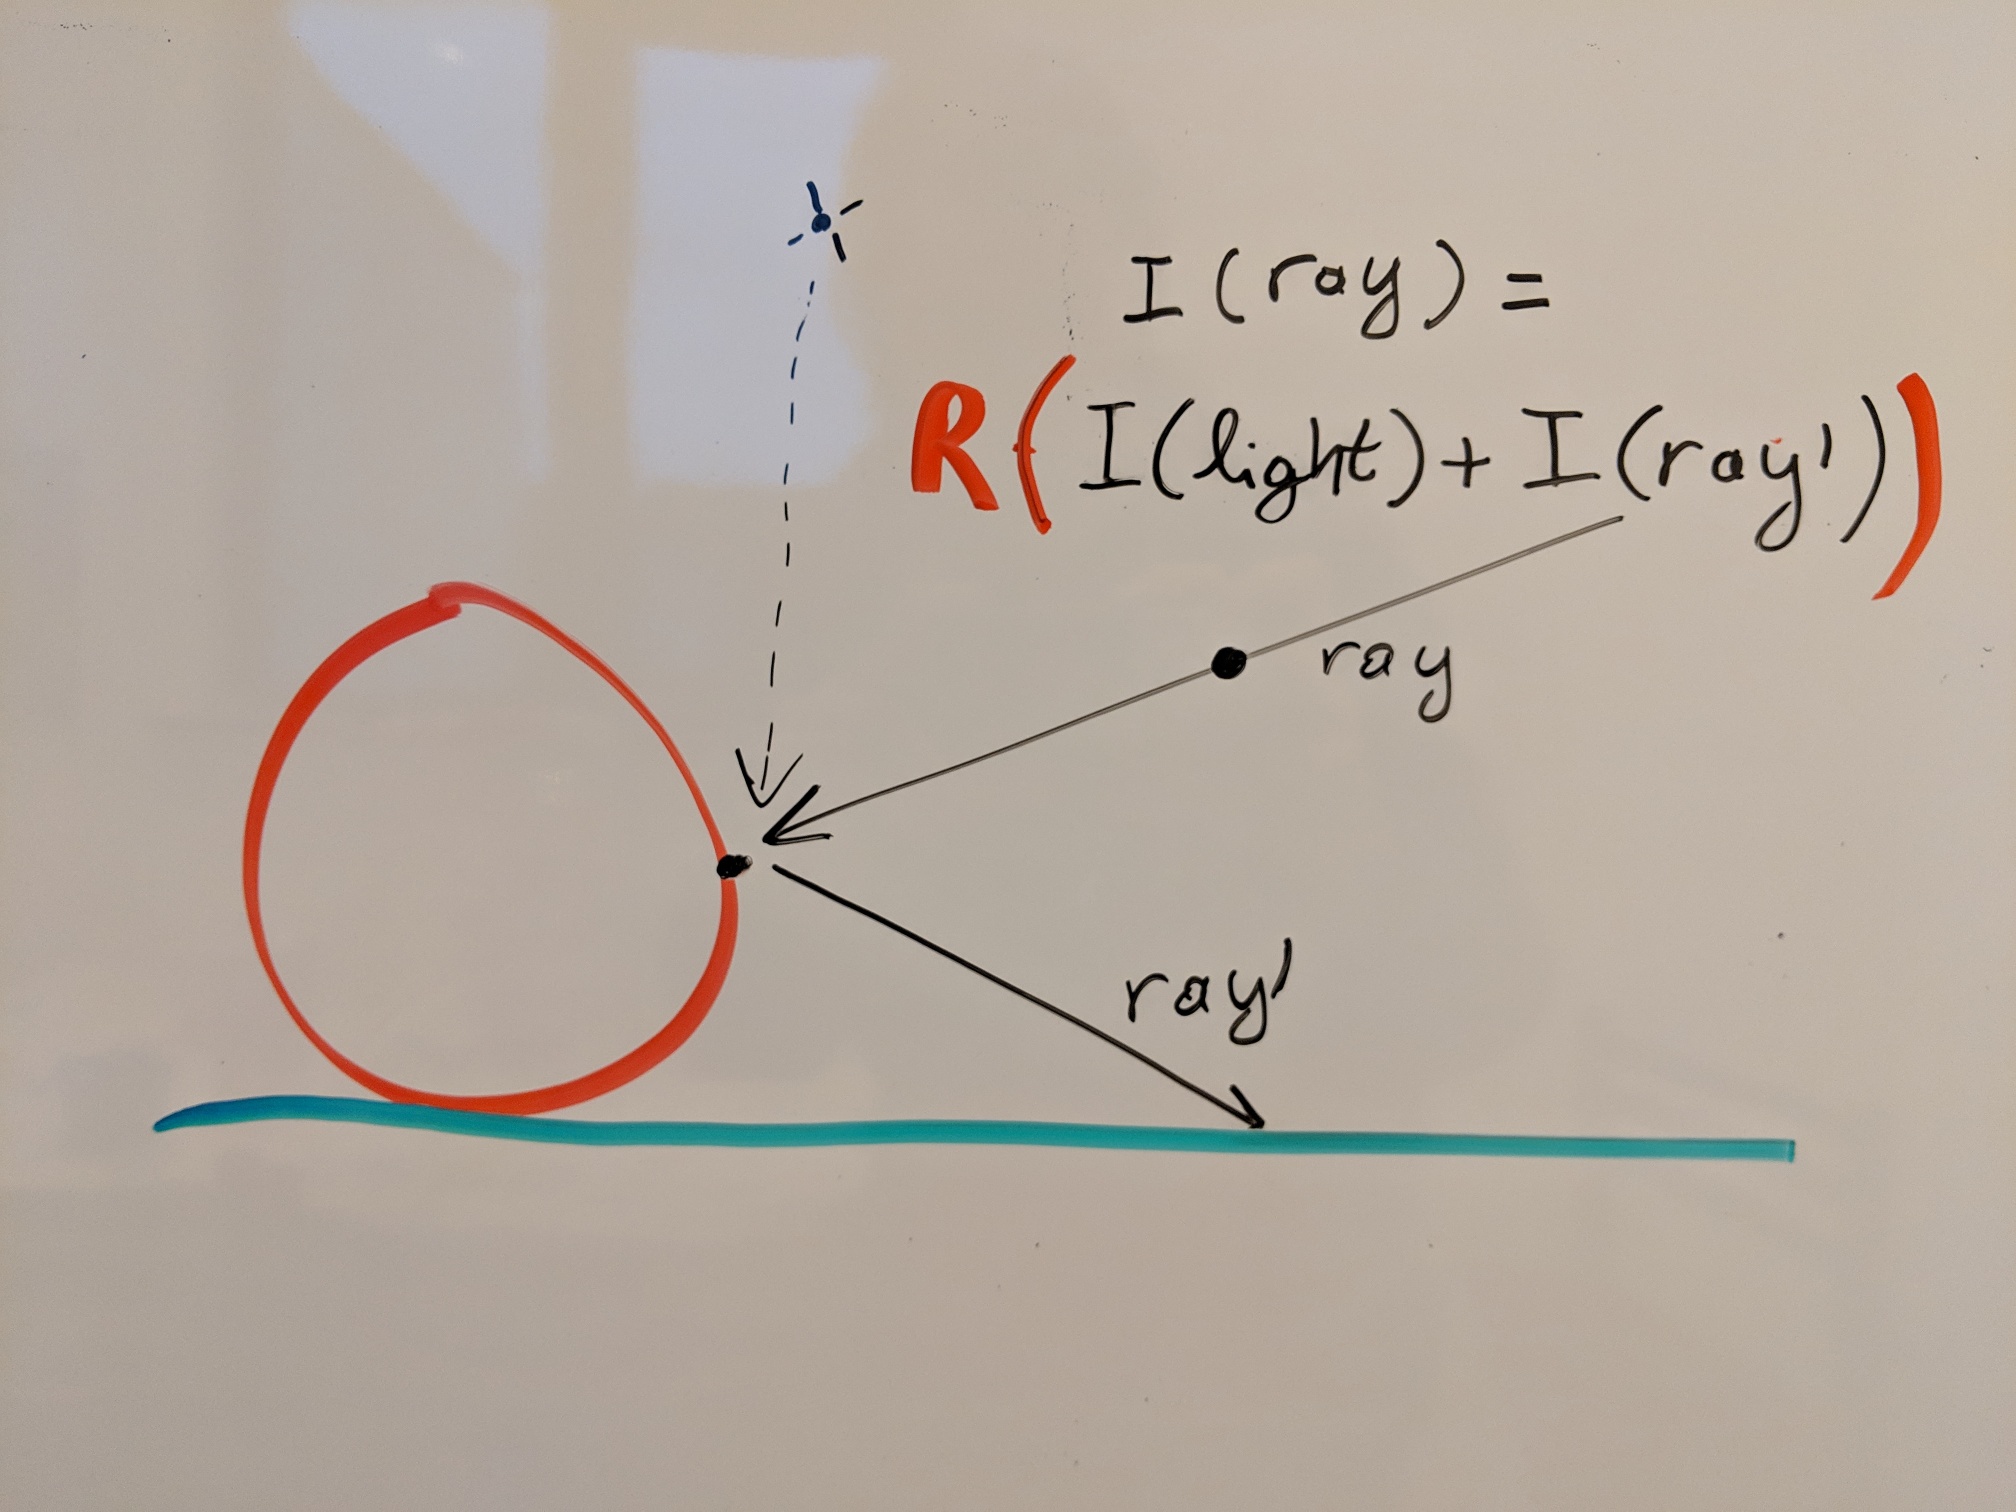 I(ray) =
R(I(light) + I(ray'))
ray
ray'